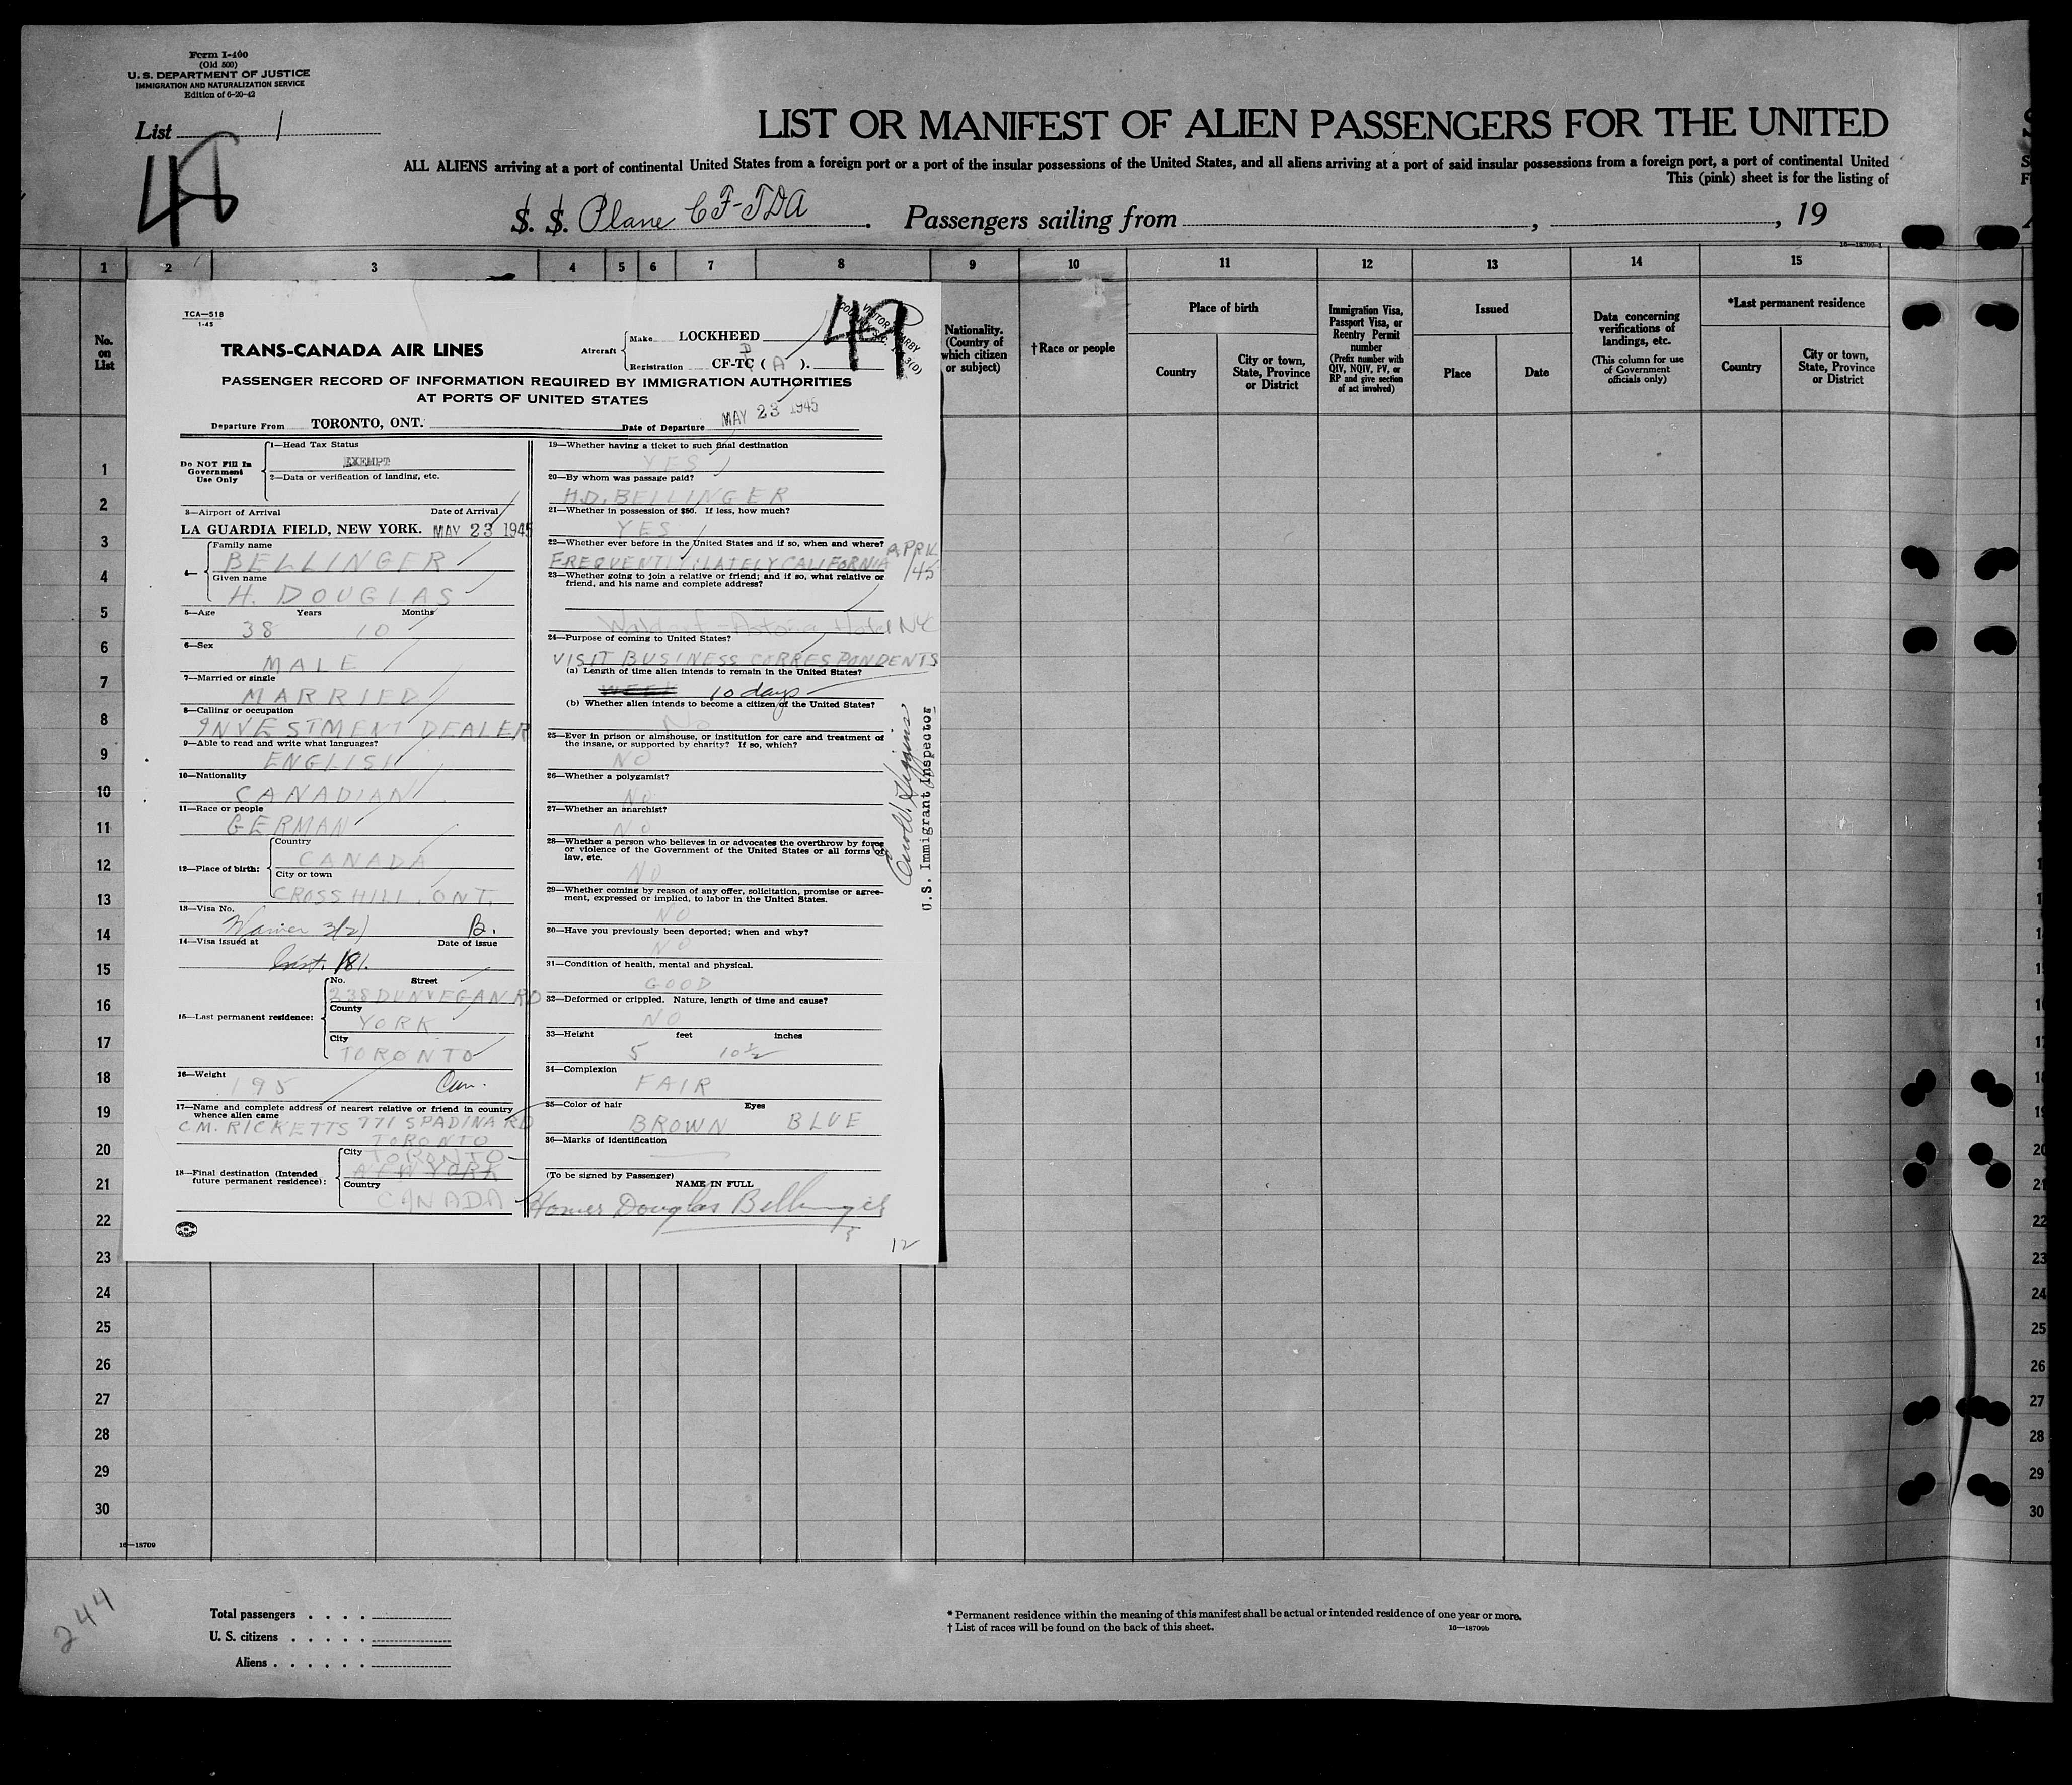 Form I-400
(Old 500)
U. S. DEPARTMENT OF JUSTICE
IMMIGRATION AND NATURALIZATION SERVICE
Edition of 6-20-42
List 1
48
LIST OR MANIFEST OF ALIEN PASSENGERS FOR THE UNITED
ALL ALIENS arriving at a port of continental United States from a foreign port or a port of the insular possessions of the United States, and all aliens arriving at a port of said insular possessions from a foreign port, a port of continental United
This (pink) sheet is for the listing of
S. S. Plane CF-TDA. Passengers sailing from , , 19
16—18709-1
1 2 3 4 5 6 7 8 9 10 11 12 13 14 15
No. on List
Nationality. (Country of which citizen or subject)
†Race or people
Place of birth
Country
City or town, State, Province or District
Immigration Visa, Passport Visa, or Reentry Permit number
(Prefix number with QIV, NQIV, PV, or RP and give section of act involved)
Issued
Place
Date
Data concerning verifications of landings, etc.
(This column for use of Government officials only)
*Last permanent residence
Country
City or town, State, Province or District
TCA—518
1-45
49
TRANS-CANADA AIR LINES
Aircraft
Make LOCKHEED
Registration CF-TC D ( A ).
PASSENGER RECORD OF INFORMATION REQUIRED BY IMMIGRATION AUTHORITIES
AT PORTS OF UNITED STATES
Departure From TORONTO, ONT. Date of Departure MAY 23 1945
Do NOT Fill In Government Use Only
1—Head Tax Status
EXEMPT
2—Data or verification of landing, etc.
3—Airport of Arrival Date of Arrival
LA GUARDIA FIELD, NEW YORK. MAY 23 1945
4—
Family name
BELLINGER
Given name
H. DOUGLAS
5—Age Years Months
38 10
6—Sex
MALE
7—Married or single
MARRIED
8—Calling or occupation
INVESTMENT DEALER
9—Able to read and write what languages?
ENGLISH
10—Nationality
CANADIAN
11—Race or people
GERMAN
12—Place of birth:
Country
CANADA
City or town
CROSSHILL, ONT.
13—Visa No.
Waiver 3(2) B.
14—Visa issued at Date of issue
181.
15—Last permanent residence:
No. Street
238 DUNVEGAN RD
County
YORK
City
TORONTO
16—Weight
195 Can.
17—Name and complete address of nearest relative or friend in country
whence alien came
C.M. RICKETTS 771 SPADINA RD
TORONTO
18—Final destination (Intended
future permanent residence):
City TORONTO
NEW YORK
Country
CANADA
19—Whether having a ticket to such final destination
YES
20—By whom was passage paid?
H.D. BELLINGER
21—Whether in possession of $50. If less, how much?
YES
22—Whether ever before in the United States and if so, when and where?
FREQUENTLY, LATELY CALIFORNIA APRIL /45
23—Whether going to join a relative or friend; and if so, what relative or
friend, and his name and complete address?
Waldorf-Astoria Hotel NYC
24—Purpose of coming to United States?
VISIT BUSINESS CORRESPONDENTS
(a) Length of time alien intends to remain in the United States?
WEEK 10 days
(b) Whether alien intends to become a citizen of the United States?
No
25—Ever in prison or almshouse, or institution for care and treatment of
the insane, or supported by charity? If so, which?
NO
26—Whether a polygamist?
NO
27—Whether an anarchist?
NO
28—Whether a person who believes in or advocates the overthrow by force
or violence of the Government of the United States or all forms of
law, etc.
NO
29—Whether coming by reason of any offer, solicitation, promise or agree-
ment, expressed or implied, to labor in the United States.
NO
30—Have you previously been deported; when and why?
NO
31—Condition of health, mental and physical.
GOOD
32—Deformed or crippled. Nature, length of time and cause?
NO
33—Height feet inches
5 10½
34—Complexion
FAIR
35—Color of hair Eyes
BROWN BLUE
36—Marks of identification
(To be signed by Passenger)
NAME IN FULL
Homer Douglas Bellinger
12
U.S. Immigrant Inspector
1
2
3
4
5
6
7
8
9
10
11
12
13
14
15
16
17
18
19
20
21
22
23
24
25
26
27
28
29
30
16—18709
244
Total passengers . . . .
U. S. citizens . . . . .
Aliens . . . . . .
* Permanent residence within the meaning of this manifest shall be actual or intended residence of one year or more.
† List of races will be found on the back of this sheet.
16—18709b